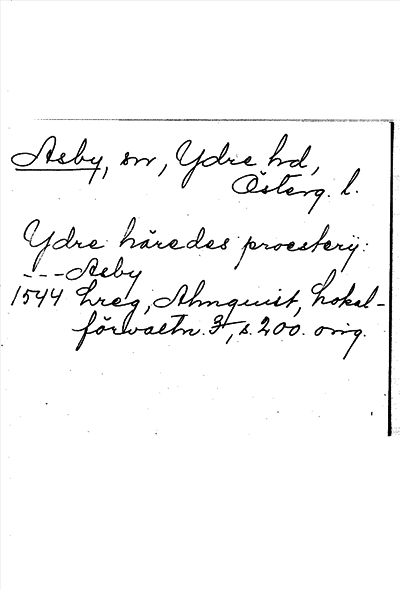 Asby, sn, Ydre hd,
Österg. l.
Ydre häredes proesterij:
---Asby
1544 Lreg, Almquist, Lokal-
förvaltn. 3, s. 200. orig.